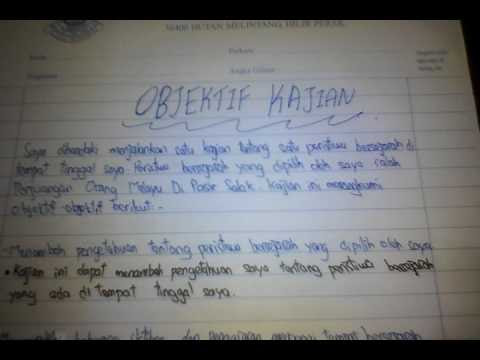 36400 HUTAN MELINTANG, HILIR PERAK.
OBJEKTIF KAJIAN
Saya dikehendaki menjalankan satu kajian tentang satu peristiwa bersejarah di
tempat tinggal saya. Peristiwa bersejarah yang dipilih oleh saya ialah
Perjuangan Orang Melayu Di Pasir Salak. Kajian ini merangkumi
objektif-objektif berikut:-
-Menambah pengetahuan tentang peristiwa bersejarah yang dipilih oleh saya
• Kajian ini dapat menambah pengetahuan saya tentang peristiwa bersejarah
yang ada di tempat tinggal saya.
dan